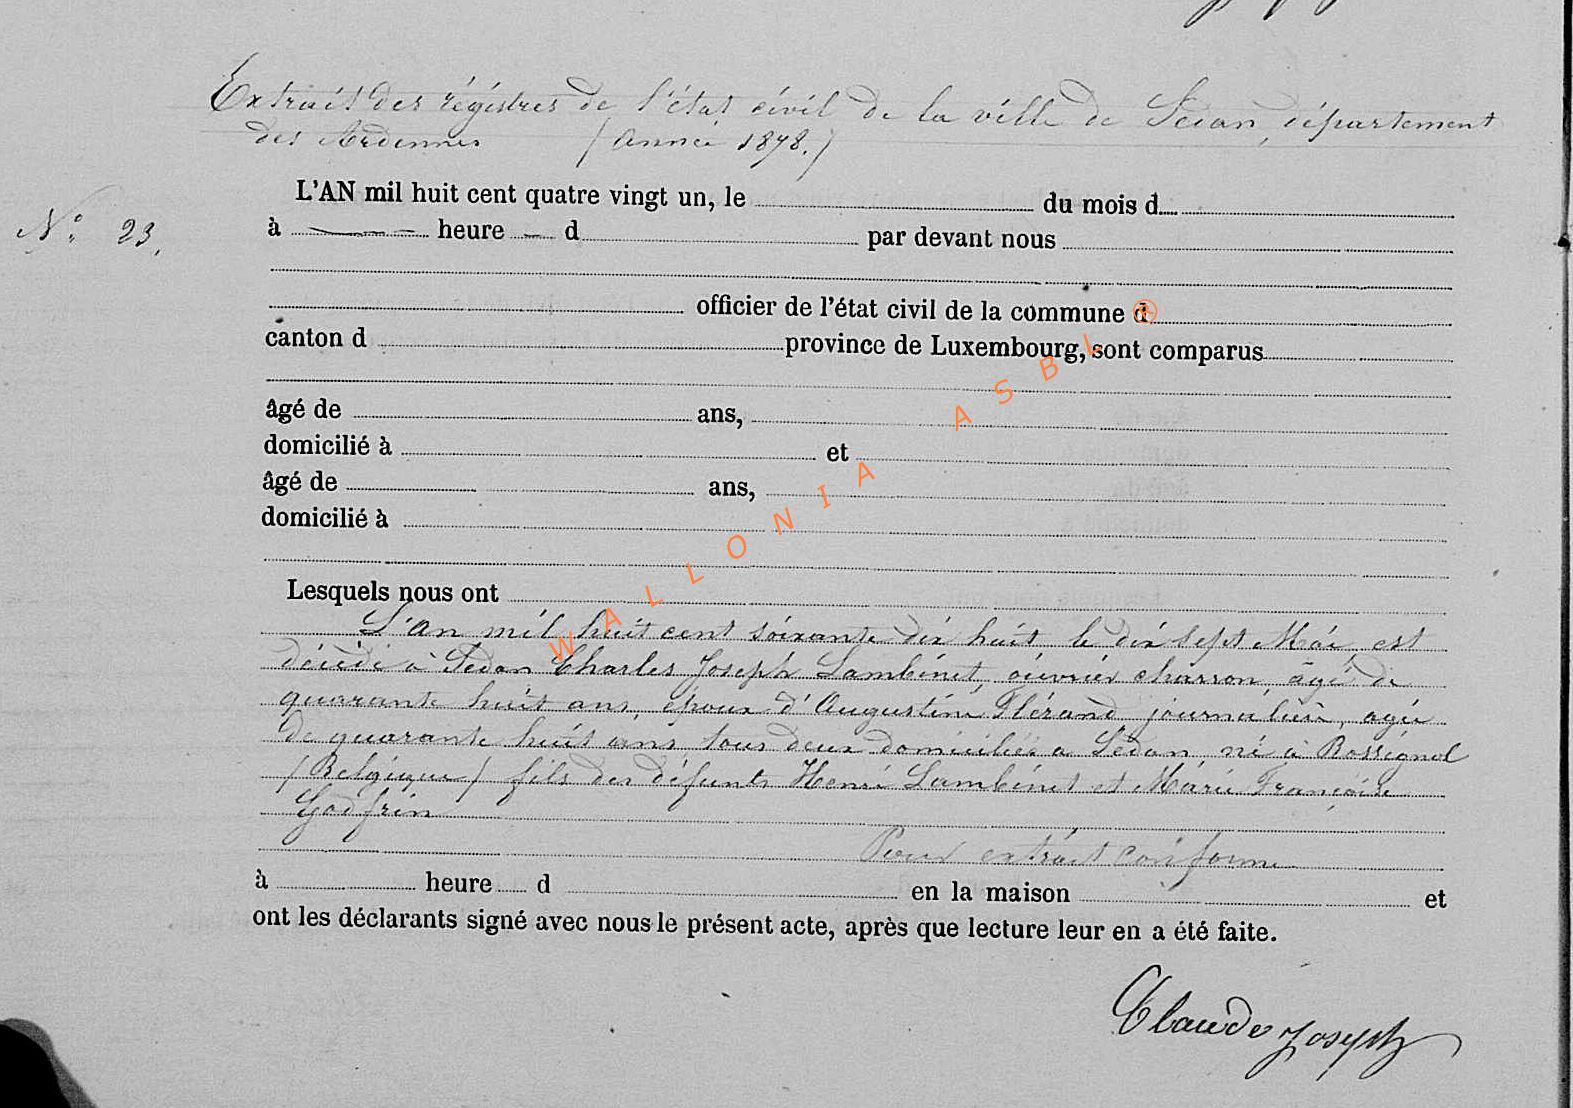 Extrait des régistres de l'état civil de la ville de Sedan, département
des Ardennes (Année 1878.)
L'AN mil huit cent quatre vingt un, le du mois d
N° 23.
à heure d par devant nous
officier de l'état civil de la commune d
canton d province de Luxembourg, sont comparus
âgé de ans,
domicilié à et
âgé de ans,
domicilié à
Lesquels nous ont
L'an mil huit cent soixante dix huit, le dix sept Mai, est
décédé à Sedan Charles Joseph Lambinet, ouvrier charron, âgé de
quarante huit ans, époux d'Augustine journalière, agée
de quarante huit ans tous deux domiciliés a Sedan né à Rossignol
(Belgique) fils des défunts Henri Lambinet et Marie Françoise
Godfrin
Pour extrait conforme
à heure d en la maison et
ont les déclarants signé avec nous le présent acte, après que lecture leur en a été faite.
Claude Joseph
WALLONIA ASBL ®